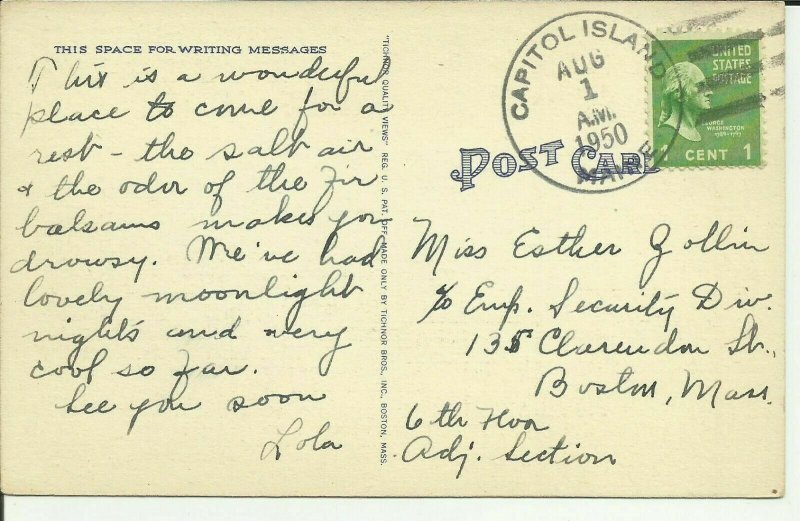 THIS SPACE FOR WRITING MESSAGES
This is a wonderful
place to come for a
rest - the salt air
& the odor of the Fir
balsams makes you
drowsy. We've had
lovely moonlight
nights and very
cool so far.
See you soon
Lola
"TICHNOR QUALITY VIEWS" REG. U. S. PAT. OFF. MADE ONLY BY TICHNOR BROS., INC., BOSTON, MASS.
CAPITOL ISLAND
AUG
1
A.M.
1950
MAINE
UNITED
STATES
POSTAGE
GEORGE
WASHINGTON
1789-1797
1 CENT 1
POST CARD
Miss Esther Zollin
c/o Emp. Security Div.
135 Clarendon St.,
Boston, Mass.
6th Floor
Adj. Section